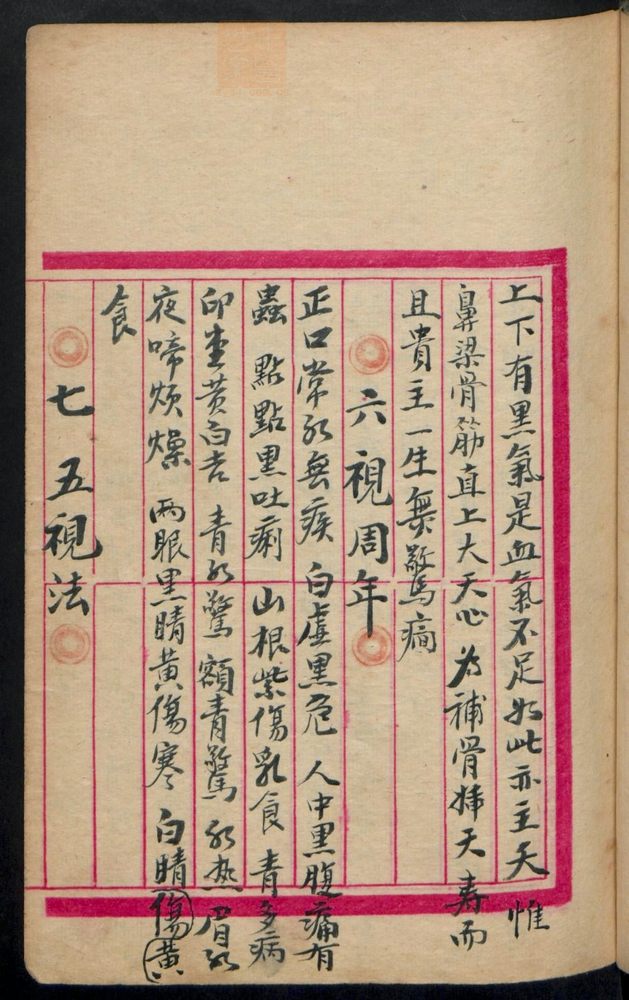 上下有黑氣是血氣不足如此亦主夭惟
鼻梁骨筋直上大天心為補骨揷天壽而
且貴主一生無驚癇
六視周年
正口常紅無疾 白虛黑危 人中黑腹痛有
蟲 點點黑吐痢 山根紫傷乳食 青多病
印堂黄白吉 青紅驚 額青驚 紅热 眉紅
夜啼烦燥 両眼黑睛黄傷寒 白睛傷黄
食
七五視法